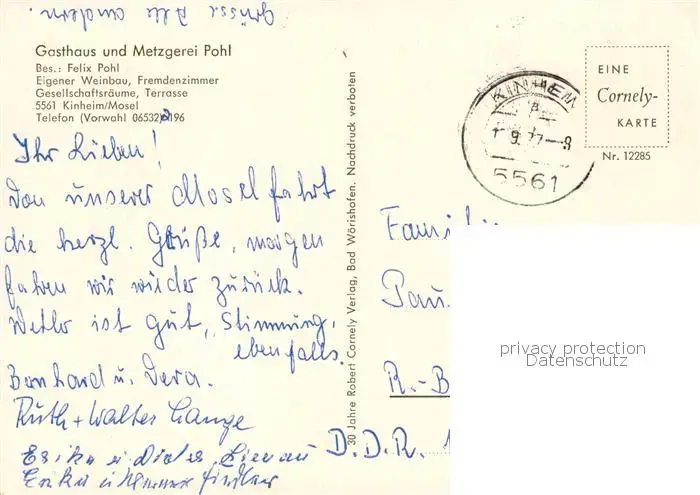 Grüsse Alle andern.
Gasthaus und Metzgerei Pohl
Bes.: Felix Pohl
Eigener Weinbau, Fremdenzimmer
Gesellschaftsräume, Terrasse
5561 Kinheim/Mosel
Telefon (Vorwahl 06532) 2196
Ihr Lieben!
Von unserer Moselfahrt
die herzl. Grüße, morgen
fahren wir wieder zurück.
Wetter ist gut, Stimmung,
ebenfalls.
Bernhard u. Vera.
Ruth + Walter Lange
Erika u Dieter Lienau
Erika u Werner Fiedler
30 Jahre Robert Cornely Verlag, Bad Wörishofen. Nachdruck verboten
KINHEIM
a
9.77-8
5561
EINE
Cornely-
KARTE
Nr. 12285
Familie
Pau
R.-B
D.D.R.
privacy protection
Datenschutz